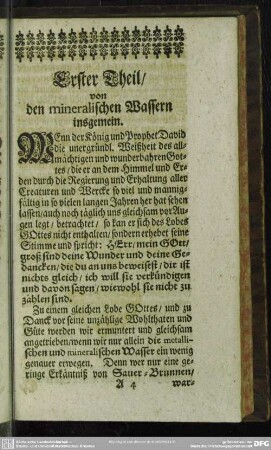 Erster Theil/
von
den mineralischen Wassern
insgemein.
WEnn der König und Prophet David
die unergründl. Weißheit des all-
mächtigen und wunderbahren Got-
tes/ die er an dem Himmel und Er-
den durch die Regierung und Erhaltung aller
Creaturen und Wercke so viel und mannig-
fältig in so vielen langen Jahren her hat sehen
lassen/ auch noch täglich uns gleichsam vor Au-
gen legt/ betrachtet/ so kan er sich des Lobes
GOttes nicht enthalten/ sondern erhebet seine
Stimme und spricht: HErr/ mein GOtt/
groß sind deine Wunder und deine Ge-
dancken/ die du an uns beweisest/ dir ist
nichts gleich/ ich will sie verkündigen
und davon sagen/ wiewohl sie nicht zu
zählen sind.
Zu einem gleichen Lobe GOttes/ und zu
Danck vor seine unzählige Wohlthaten und
Güte werden wir ermuntert und gleichsam
angetrieben/ wenn wir nur allein die metalli-
schen und mineralischen Wasser ein wenig
genauer erwegen. Denn wer nur eine ge-
ringe Erkäntniß von Sauer-Brunnen/
A 4 war-
DFG